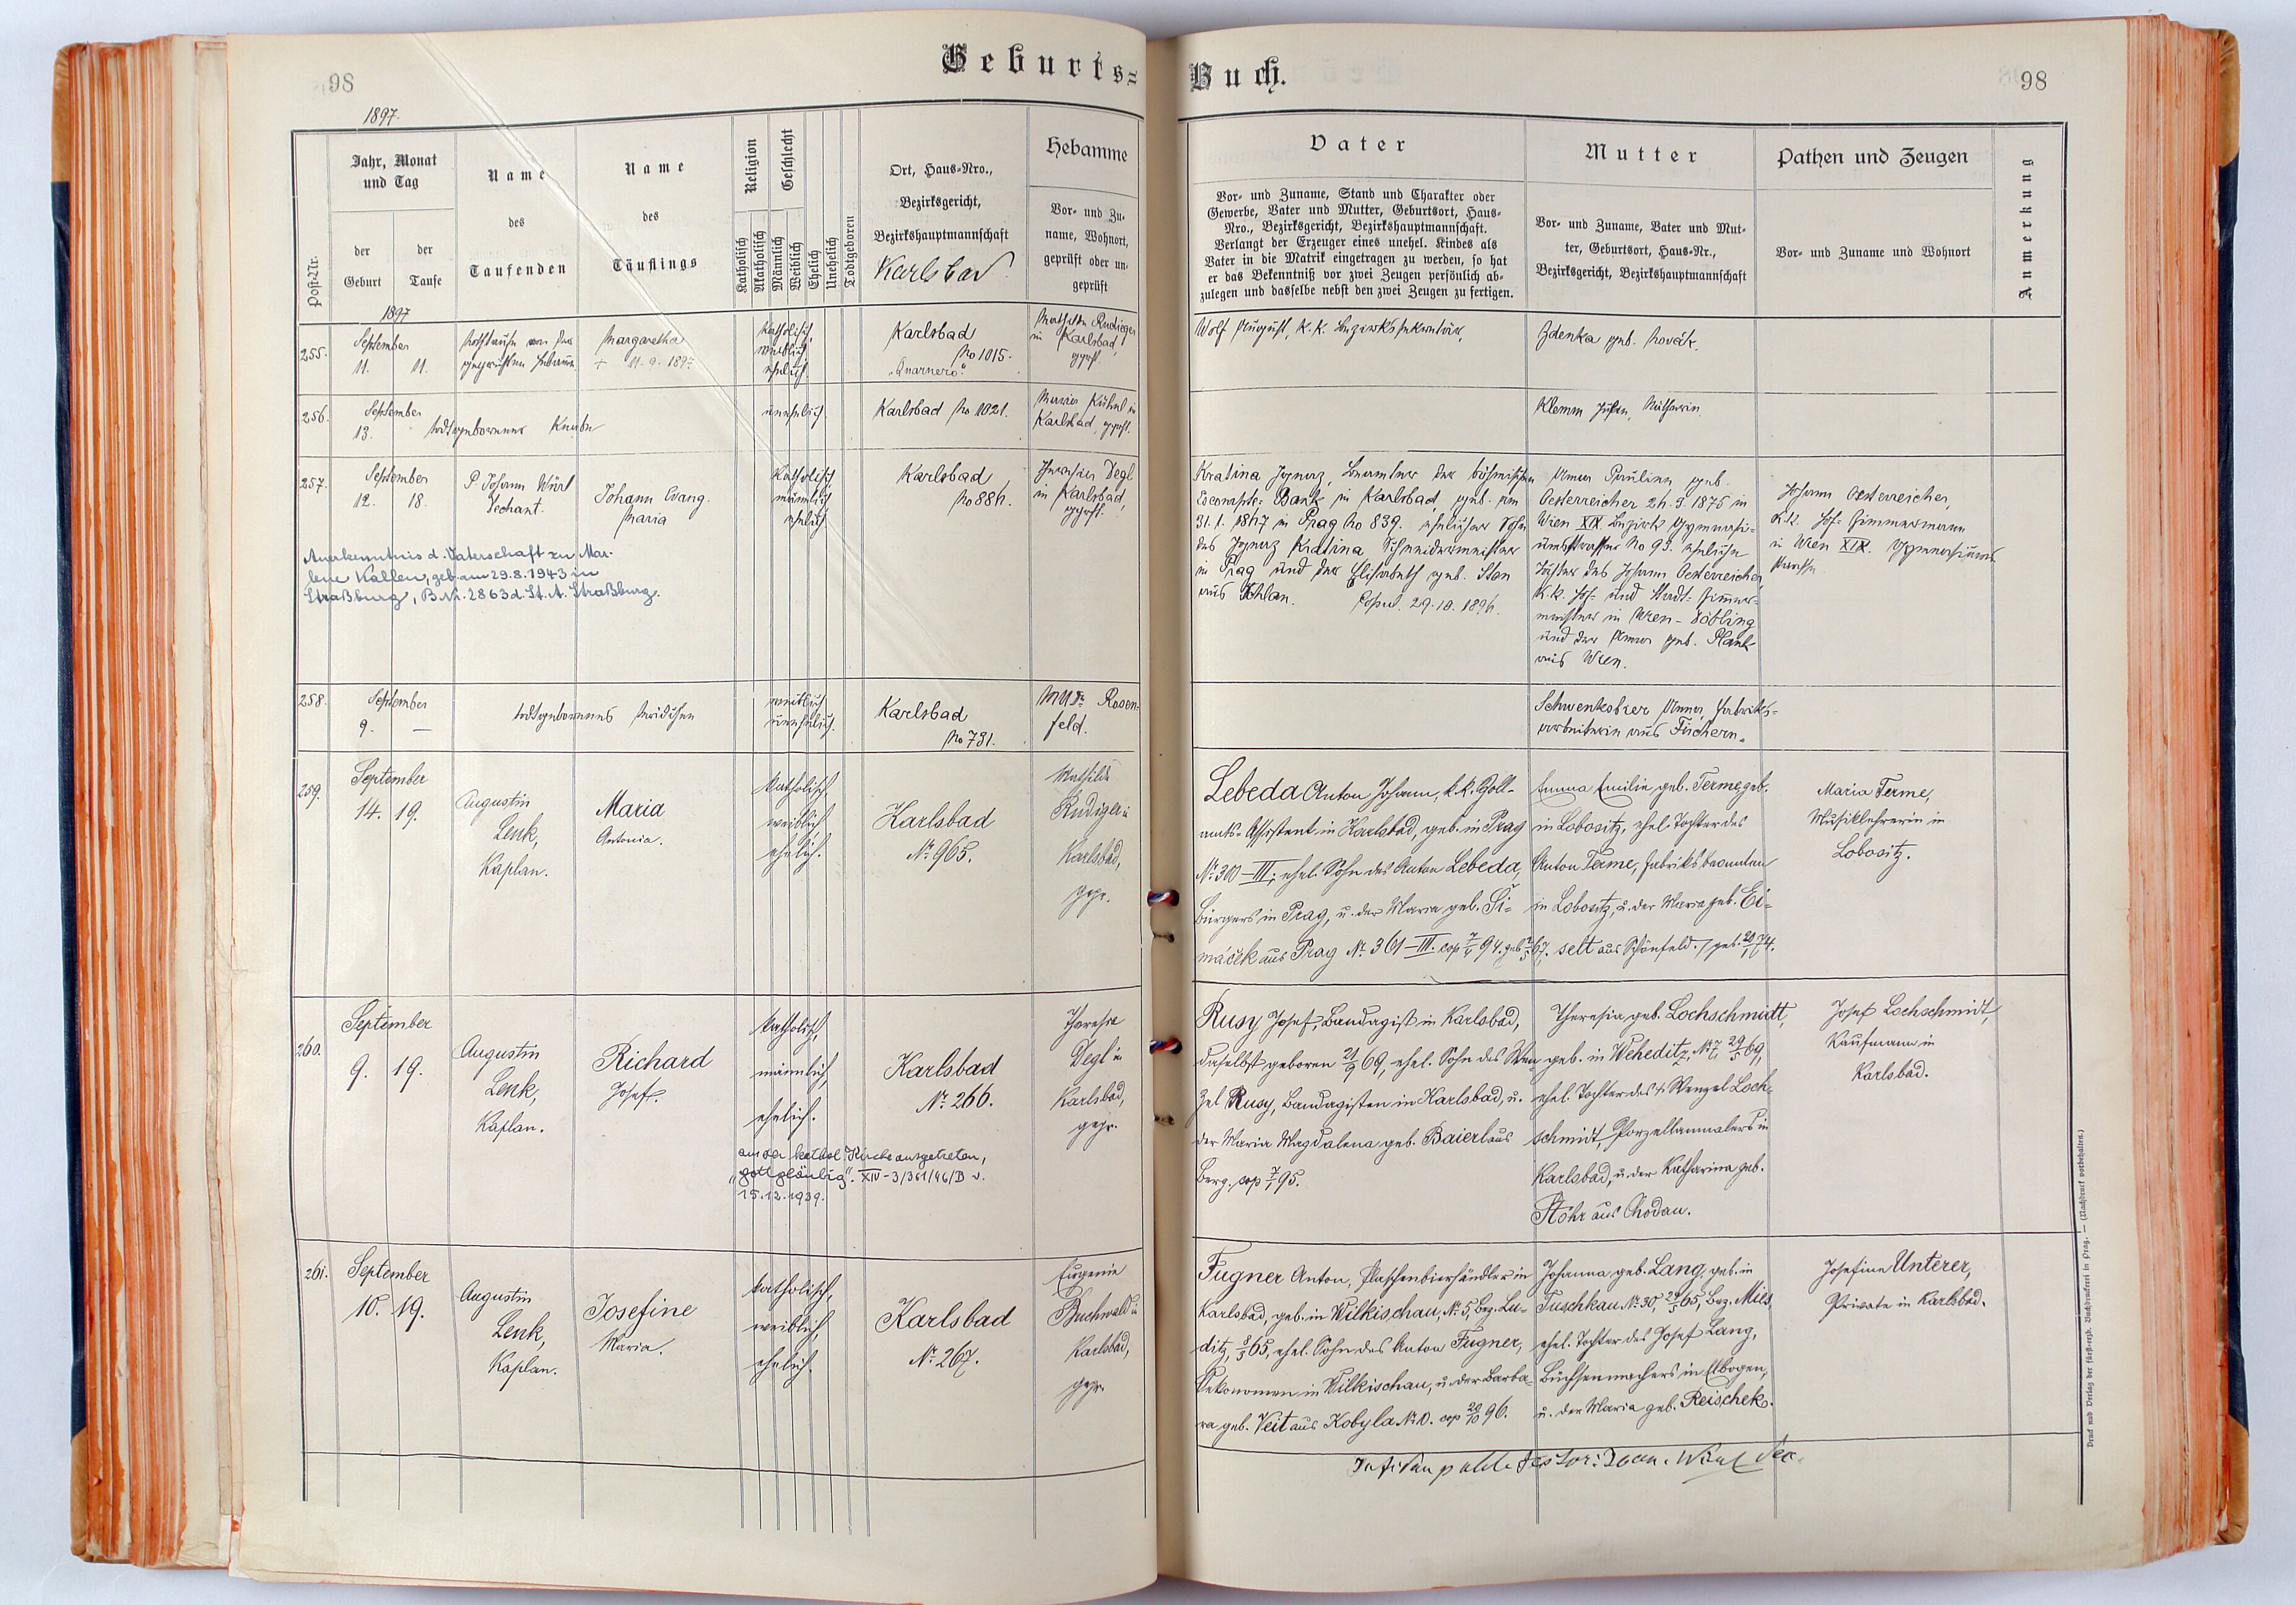 Geburts=
Buch.
98
98
1897.
Post-Nr.
Jahr, Monat
und Tag
der
Geburt
der
Taufe
Name
des
Taufenden
Name
des
Täuflings
Religion
Katholisch
Akatholisch
Geschlecht
Männlich
Weiblich
Ehelich
Unehelich
Todtgeboren
Ort, Haus-Nro.,
Bezirksgericht,
Bezirkshauptmannschaft
Karlsbad
Hebamme
Vor- und Zu-
name, Wohnort,
geprüft oder un-
geprüft
Vater
Vor- und Zuname, Stand und Charakter oder
Gewerbe, Vater und Mutter, Geburtsort, Haus-
Nro., Bezirksgericht, Bezirkshauptmannschaft.
Verlangt der Erzeuger eines unehel. Kindes als
Vater in die Matrik eingetragen zu werden, so hat
er das Bekenntniß vor zwei Zeugen persönlich ab-
zulegen und dasselbe nebst den zwei Zeugen zu fertigen.
Mutter
Vor- und Zuname, Vater und Mut-
ter, Geburtsort, Haus-Nr.,
Bezirksgericht, Bezirkshauptmannschaft
Pathen und Zeugen
Vor- und Zuname und Wohnort
Anmerkung
1897
255.
September
11. 11.
Nothtaufe von der
geprüften Hebamme
Margaretha
+ 11.9.1897
katholisch,
weiblich
ehelich.
Karlsbad
No 1015.
"Quarnero".
Mathilde Rudiger
in Karlsbad,
gepft.
Wolf August, k.k. Bezirkssekretär,
Zdenka geb. Novák.
256.
September
13.
todtgeborener Knabe
unehelich.
Karlsbad No 1021.
Maria Kühnl in
Karlsbad, gepft.
Klemm Julian, Nätherin.
257.
September
12. 18.
P. Johann Würl
Dechant.
Johann Evang.
Maria
Katholisch
männlich
ehelich
Karlsbad
No 884.
Theresia Degl
in Karlsbad,
gepft.
Anerkenntnis d. Vaterschaft zu Mar-
lene Kallen, geb. am 29.8.1943 in
Straßburg, B.Nr. 2863 d. St. A. Straßburg.
Kratina Ignaz, Beamter der böhmischen
Escompte-Bank in Karlsbad, geb. am
31.1.1847 in Prag No 839. ehelicher Sohn
des Ignaz Kratina Schneidermeister
in Prag und der Elisabeth geb. Stan
aus Schlan. Copul. 29.10.1896.
Anna Paulina geb.
Oesterreicher 24.9.1875 in
Wien XIX Bezirk Gymnasi-
umstrasse No 93. eheliche
Tochter des Johann Oesterreicher,
k.k. Hof- und Stadt-Zimmer-
meister in Wien-Döbling
und der Anna geb. Plank
aus Wien.
Johann Oesterreicher,
k.k. Hof-Zimmermann
in Wien XIX. Gymnasiums
strasse
258.
September
9. —
todtgeborenes Mädchen
weiblich
unehelich.
Karlsbad
No 781.
MUDr. Rosen-
feld.
Schwenksbier Anna, Fabriks-
arbeiterin aus Fischern.
259.
September
14. 19.
Augustin
Lenk,
Kaplan.
Maria
Antonia.
katholisch,
weiblich
ehelich.
Karlsbad
№ 965.
Mathilde
Rudiger in
Karlsbad,
gepr.
Lebeda Anton Johann, k.k. Zoll-
amts-Assistent in Karlsbad, geb. in Prag
№ 300-III; ehel. Sohn des Anton Lebeda,
Bürgers in Prag, u. der Maria geb. Ši-
máček aus Prag № 361-III. cop 7/ 94. geb. 67.
Emma Emilie geb. Terme, geb.
in Lobositz, ehel. Tochter des
Anton Terme, Fabriksbeamten
in Lobositz, u. der Maria geb. Ei-
selt aus Schönfeld. / geb. 20/ 74.
Maria Terme,
Musiklehrerin in
Lobositz.
260.
September
9. 19.
Augustin
Lenk,
Kaplan.
Richard
Josef.
katholisch,
männlich,
ehelich.
Karlsbad
№ 266.
Theresia
Degl in
Karlsbad,
gepr.
aus der kathol. Kirche ausgetreten,
"gottgläubig". XIV-3/361/46/D v.
15.12.1939.
Rusy Josef, Bandagist in Karlsbad,
daselbst geboren 21/9 69, ehel. Sohn des Wen-
zel Rusy, Bandagisten in Karlsbad, u.
der Maria Magdalena geb. Baierl aus
Berg. cop 7/1 95.
Theresia geb. Lochschmidt,
geb. in Weheditz, № 7, 29/5 69,
ehel. Tochter des † Wenzel Loch-
schmidt, Porzellanmalers in
Karlsbad, u. der Katharina geb.
Stöhr aus Chodau.
Josef Lochschmidt,
Kaufmann in
Karlsbad.
261.
September
10. 19.
Augustin
Lenk,
Kaplan.
Josefine
Maria.
katholisch,
weiblich,
ehelich.
Karlsbad
№ 267.
Eugenie
Buchwald in
Karlsbad,
gepr.
Fugner Anton, Flaschenbierhändler in
Karlsbad, geb. in Wilkischau, № 5, Bez. Lu-
ditz, 8/3 65, ehel. Sohn des Anton Fugner,
Oekonomen in Wilkischau, u. der Barba-
ra geb. Veit aus Kobyla № 10. cop 20/10 96.
Johanna geb. Lang, geb. in
Tuschkau № 30, 29/5 65, Bez. Mies,
ehel. Tochter des Josef Lang,
Büchsenmachers in Elbogen,
u. der Maria geb. Reischek.
Josefine Unterer,
Private in Karlsbad.
Druck und Verlag der fürst-erzb. Buchdruckerei in Prag. — (Nachdruck vorbehalten.)